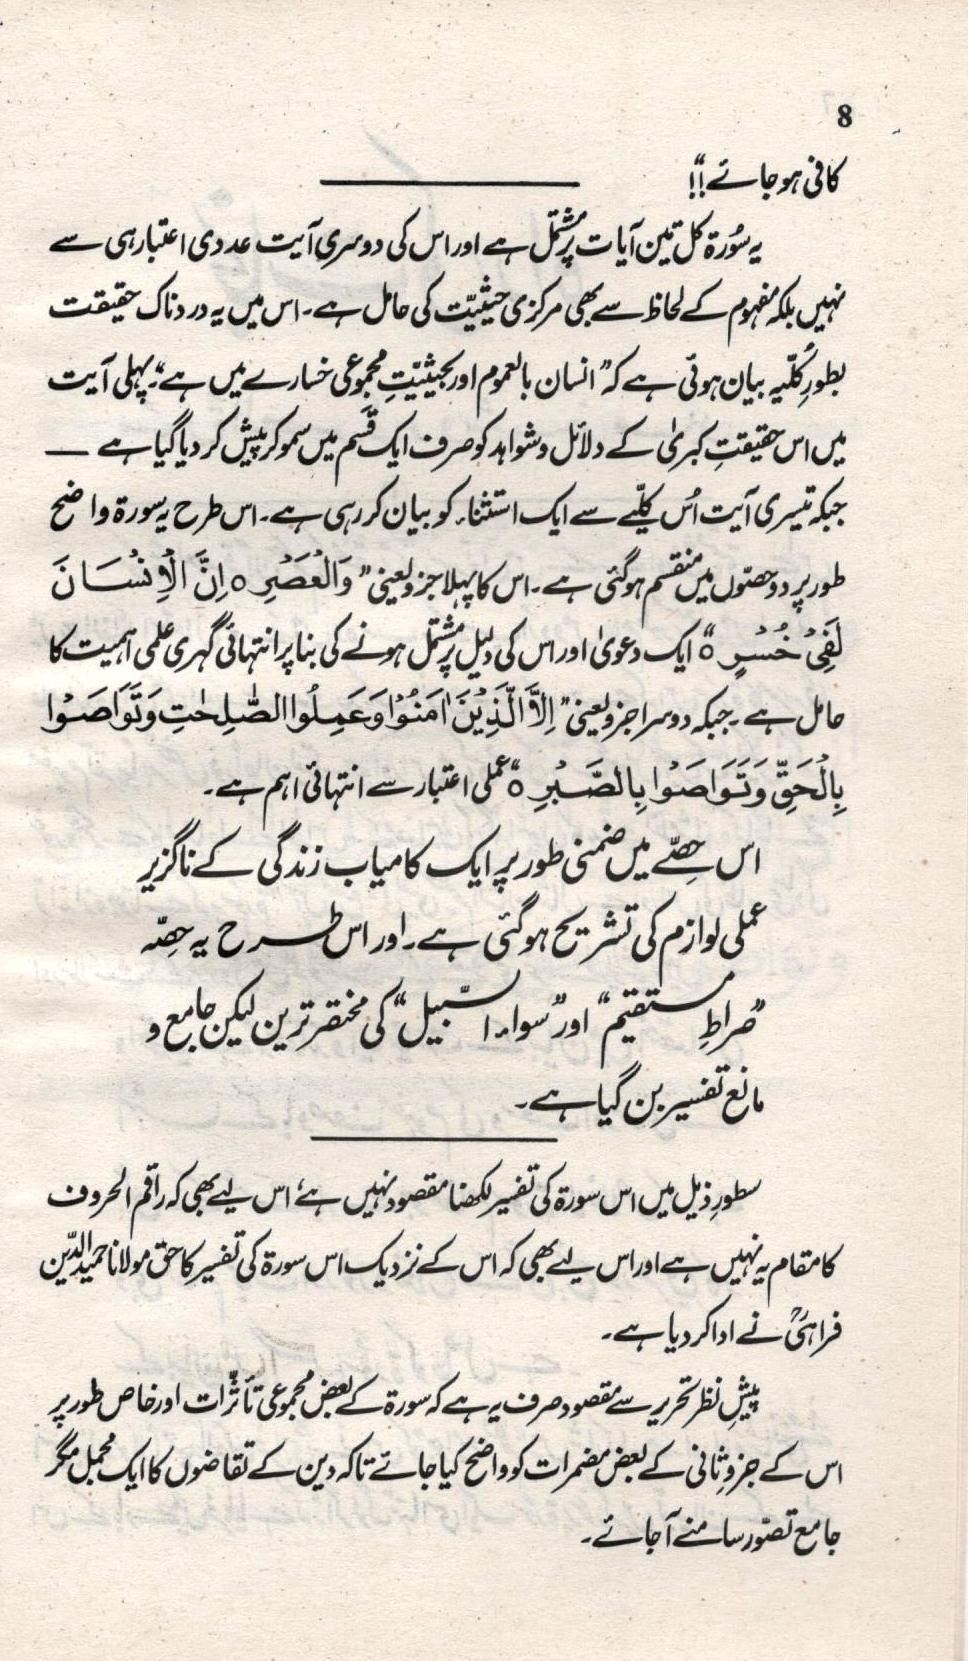 8
کافی ہو جائے"!!
یہ سُورۃ کل تین آیات پر مشتمل ہے اور اس کی دوسری آیت عددی اعتبار ہی سے
نہیں بلکہ مفہوم کے لحاظ سے بھی مرکزی حیثیّت کی حامل ہے۔ اس میں یہ دردناک حقیقت
بطورِ کُلّیہ بیان ہوئی ہے کہ "انسان بالعموم اور بحیثیّتِ مجموعی خسارے میں ہے"۔ پہلی آیت
میں اس حقیقتِ کبریٰ کے دلائل و شواہد کو صرف ایک قَسم میں سمو کر پیش کر دیا گیا ہے —
جبکہ تیسری آیت اُس کلیّے سے ایک استثناء کو بیان کر رہی ہے۔ اس طرح یہ سورۃ واضح
طور پر دو حصّوں میں منقسم ہو گئی ہے۔ اس کا پہلا جزو یعنی "وَالْعَصْرِ ○ اِنَّ الْاِنْسَانَ
لَفِیْ خُسْرٍ ○" ایک دعویٰ اور اس کی دلیل پر مشتمل ہونے کی بنا پر انتہائی گہری علمی اہمیت کا
حامل ہے۔ جبکہ دوسرا جزو یعنی "اِلَّا الَّذِیْنَ اٰمَنُوْا وَعَمِلُوا الصّٰلِحٰتِ وَتَوَاصَوْا
بِالْحَقِّ وَتَوَاصَوْا بِالصَّبْرِ ○" عملی اعتبار سے انتہائی اہم ہے۔
اس حِصّے میں ضمنی طور پر ایک کامیاب زندگی کے ناگزیر
عملی لوازم کی تشریح ہو گئی ہے۔ اور اس طرح یہ حِصّہ
"صراطِ مستقیم" اور "سواء السّبیل" کی مختصر ترین لیکن جامع و
مانع تفسیر بن گیا ہے۔
سطورِ ذیل میں اس سورۃ کی تفسیر لکھنا مقصود نہیں ہے، اس لیے بھی کہ راقم الحروف
کا مقام یہ نہیں ہے اور اس لیے بھی کہ اس کے نزدیک اس سورۃ کی تفسیر کا حق مولانا حمید الدّین
فراہیؒ نے ادا کر دیا ہے۔
پیشِ نظر تحریر سے مقصود صرف یہ ہے کہ سورۃ کے بعض مجموعی تأثّرات اور خاص طور پر
اس کے جزوِ ثانی کے بعض مضمرات کو واضح کیا جائے تاکہ دین کے تقاضوں کا ایک مجمل مگر
جامع تصوّر سامنے آ جائے۔